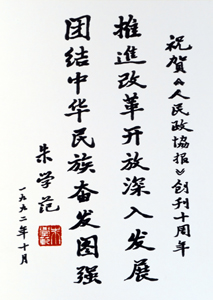 祝贺《人民政協报》创刊十周年
推進改革开放深入发展
团结中华民族奋发图强
朱学范
一九九二年十月